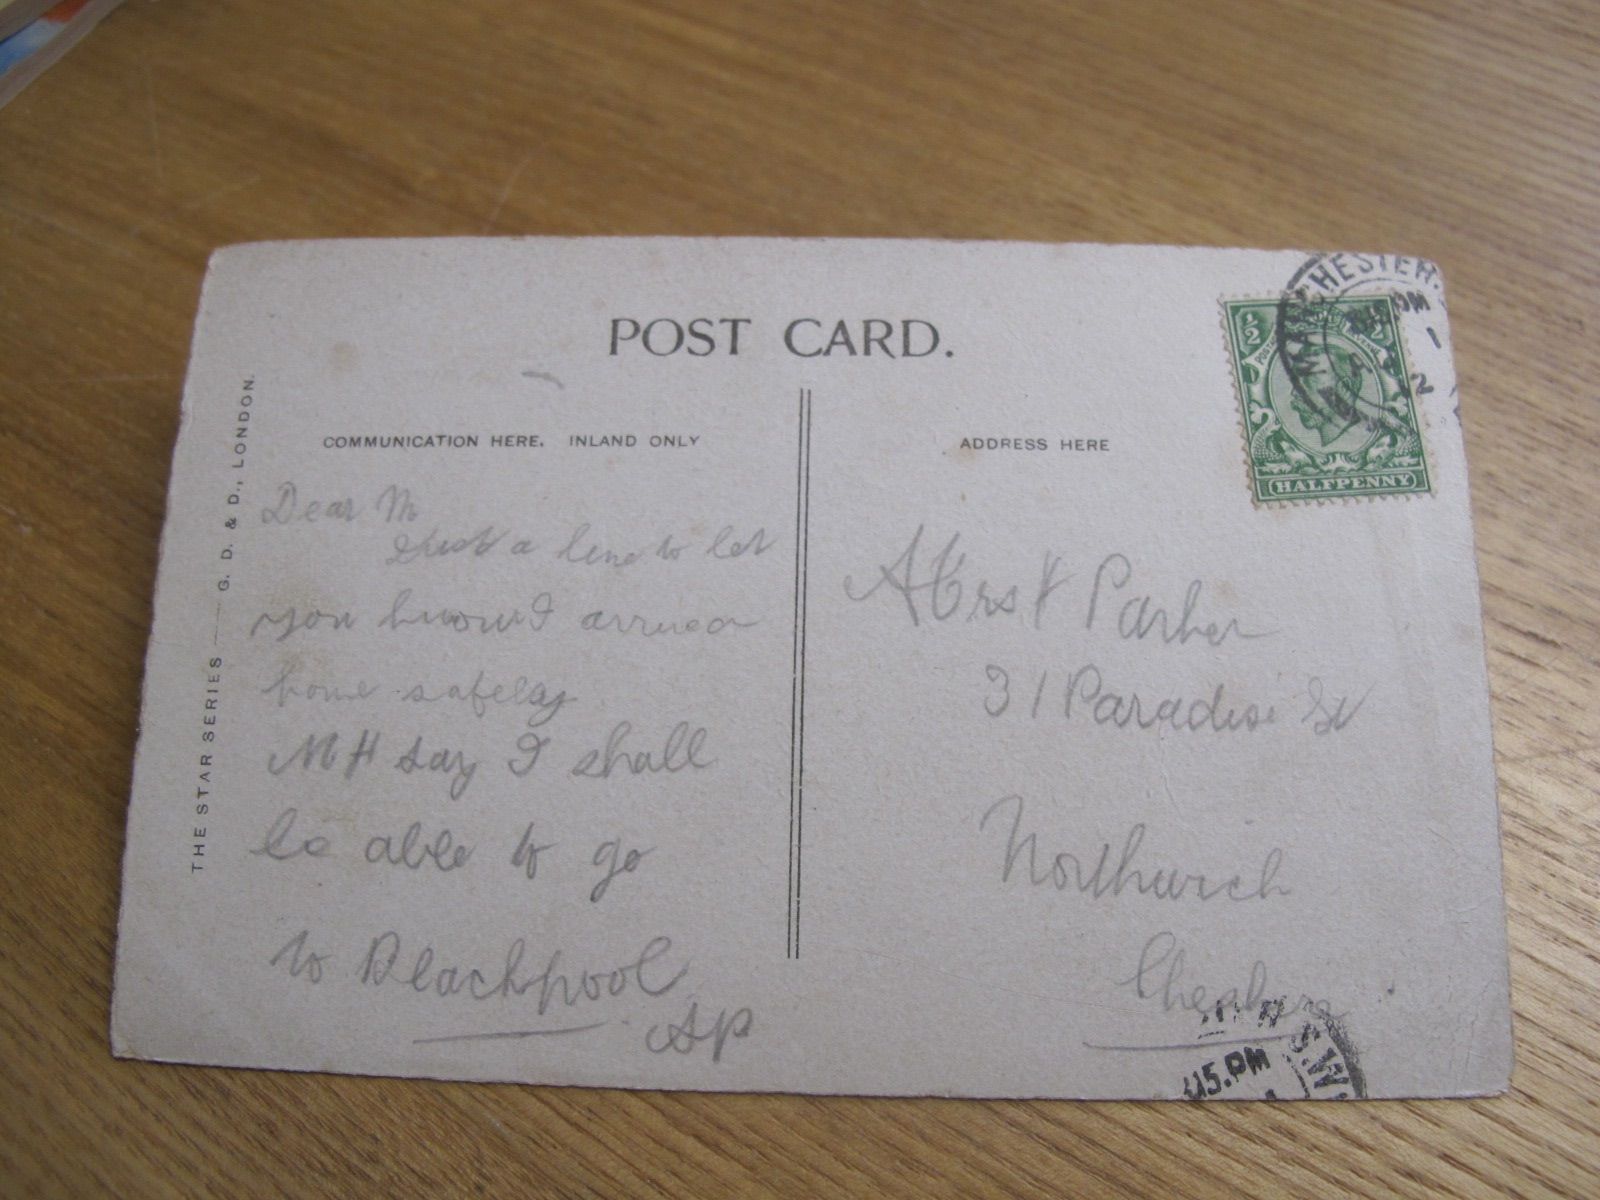 POST CARD.
THE STAR SERIES — G. D. & D., LONDON.
COMMUNICATION HERE. INLAND ONLY
ADDRESS HERE
MANCHESTER.
HALFPENNY
Dear M
Just a line to let
you know I arrived
home safely
MH say I shall
be able to go
to Blackpool
AP
Mrs Parker
31 Paradise St
Northwich
Cheshire
15.PM